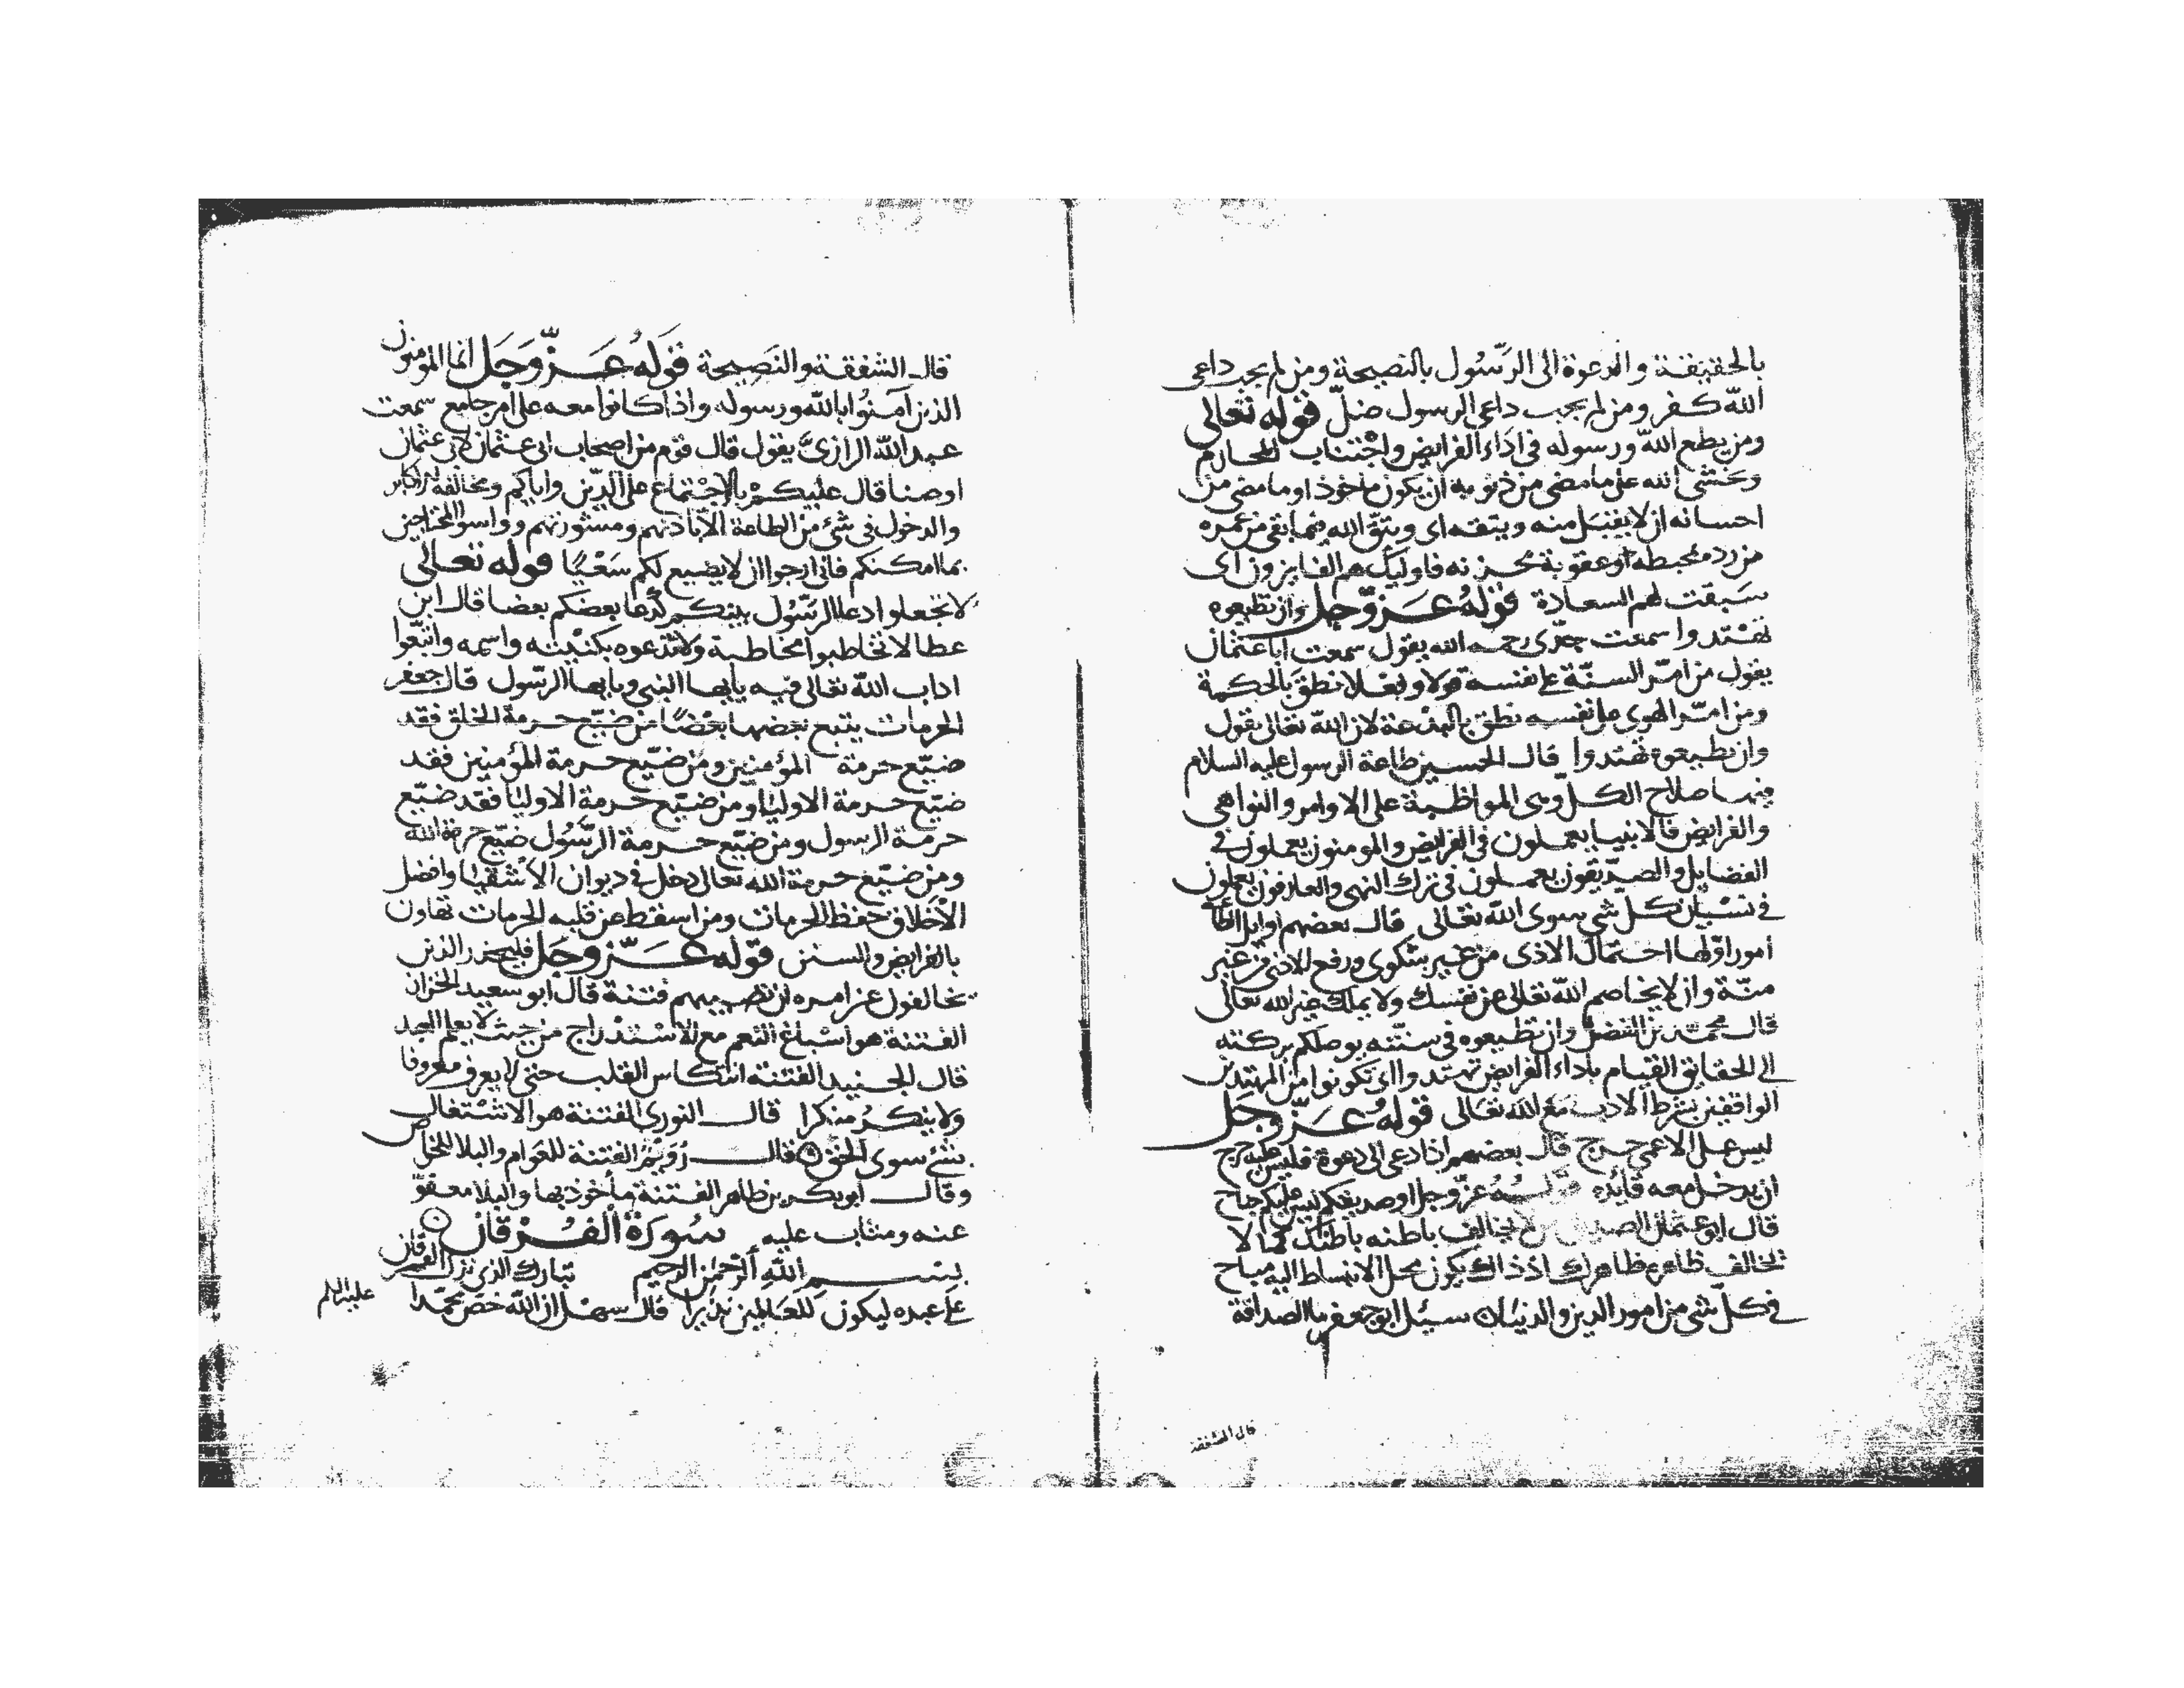 بالحقيقة والدعوة الى الرسول بالنصيحة ومن لم يجب داعى
الله كفر ومن لم يجب داعى الرسول ضلّ قوله تعالى
ومن يطع الله ورسوله فى اداء الفرايض واجتناب المحارم
ويخشى الله على ما مضى من ذنوبه ان يكون ماخوذ او ما مضى من
احسانه ان لا يقبل منه ويتقه اى ويتق الله فيما بقى من عمره
من رد محبطه او عقوبة محزنه فاوليك هم الفايزون اى
سبقت لهم السعادة قوله عزّ وجل وان تطيعوه
تهتدوا سمعت جدى رحمه الله يقول سمعت ابا عثمان
يقول من امّر السنّة على نفسه قولا وفعلا نطق بالحكمة
ومن امّر الهوى على نفسه نطق بالبدعة لان الله تعالى يقول
وان تطيعوه تهتدوا قال الحسين طاعة الرسول عليه السلام
فيها صلاح الكل وهى المواظبة على الاوامر والنواهى
والفرايض فالانبيا يعملون فى الفرايض والمومنون يعملون فى
الفضايل والصدّيقون يعملون فى ترك النهى والعارفون يعملون
فى نسيان كل شى سوى الله تعالى قال بعضهم اوايل الطاعة
امور اوّلها احتمال الاذى من غير شكوى ورفع الاذى من غير
منّة وان لا يخاصم الله تعالى عن نفسك ولا يملك غير الله تعالى
قال محمد بن الفضل وان تطيعوه فى سنّته يوصلكم بركته
الى الحقايق القيام باداء الفرايض تهتدوا اى تكونوا من المهتدين
الواقفين بشرط الادب مع الله تعالى قوله عزّ وجل
ليس على الاعمى حرج قال بعضهم اذا دعى الى دعوة فليس عليه حرج
ان يدخل معه قائده قوله عزّ وجل او صديقكم ليس عليكم جناح
قال ابو عثمان الصديق من لا يخالف باطنه باطنك كما لا
يخالف ظاهره ظاهرك اذ ذاك يكون محل الانبساط اليه مباح
فى كل شى من امور الدين والدنيا سئل ابو جعفر ما الصداقة
قال الشفقة
قال الشفقة والنصيحة قوله عزّ وجل انما المومنون
الذين آمنوا بالله ورسوله واذا كانوا معه على امر جامع سمعت
عبد الله الرازىّ يقول قال قوم من اصحاب ابى عثمان لابى عثمان
اوصنا قال عليكم بالاجتماع على الدّين واياكم ومخالفة الاكابر
والدخول فى شئ من الطاعة الا باذنهم ومشورتهم وواسوا المحتاجين
بما امكنكم فانى ارجوا ان لا يضيع لكم سعيًا قوله تعالى
لا تجعلوا دعا الرسول بينكم كدعا بعضكم بعضا قال ابن
عطا لا تخاطبوا مخاطبة ولا تدعوه بكنيته واسمه واتبعوا
اداب الله تعالى فيه يايها النبى ويايها الرسول قال جعفر
الحرمات يتبع بعضها بعضًا من ضيّع حرمة الخلق فقد
ضيّع حرمة المؤمنين ومن ضيّع حرمة المؤمنين فقد
ضيّع حرمة الاوليا ومن ضيّع حرمة الاوليا فقد ضيّع
حرمة الرسول ومن ضيّع حرمة الرّسول ضيّع حرمة الله
ومن ضيّع حرمة الله تعالى دخل فى ديوان الاشقيا وافضل
الاخلاق حفظ الحرمات ومن اسقط عن قلبه الحرمات تهاون
بالفرايض والسنن قوله عزّ وجل فليحذر الذين
يخالفون عن امره ان تصيبهم فتنة قال ابو سعيد الخزاز
الفتنة هو اسباغ النعم مع الاستدراج من حيث لا يعلم العبد
قال الجنيد الفتنة انتكاس القلب حتى لا يعرف معروفا
ولا ينكر منكرا قال النورى الفتنة هو الاشتغال
بشئ سوى الحق قال رُوَيْمُ الفتنة للعوام والبلا للخاص
وقال ابو بكر بن طاهر الفتنة مأخوذ بها والبلا معفوّ
عنه ومثاب عليه سورة الفرقان
بسم الله الرحمن الرحيم تبارك الذى نزل الفرقان
على عبده ليكون للعالمين نذيرا قال سهل ان الله خصّ محمّدا
عليه السلم